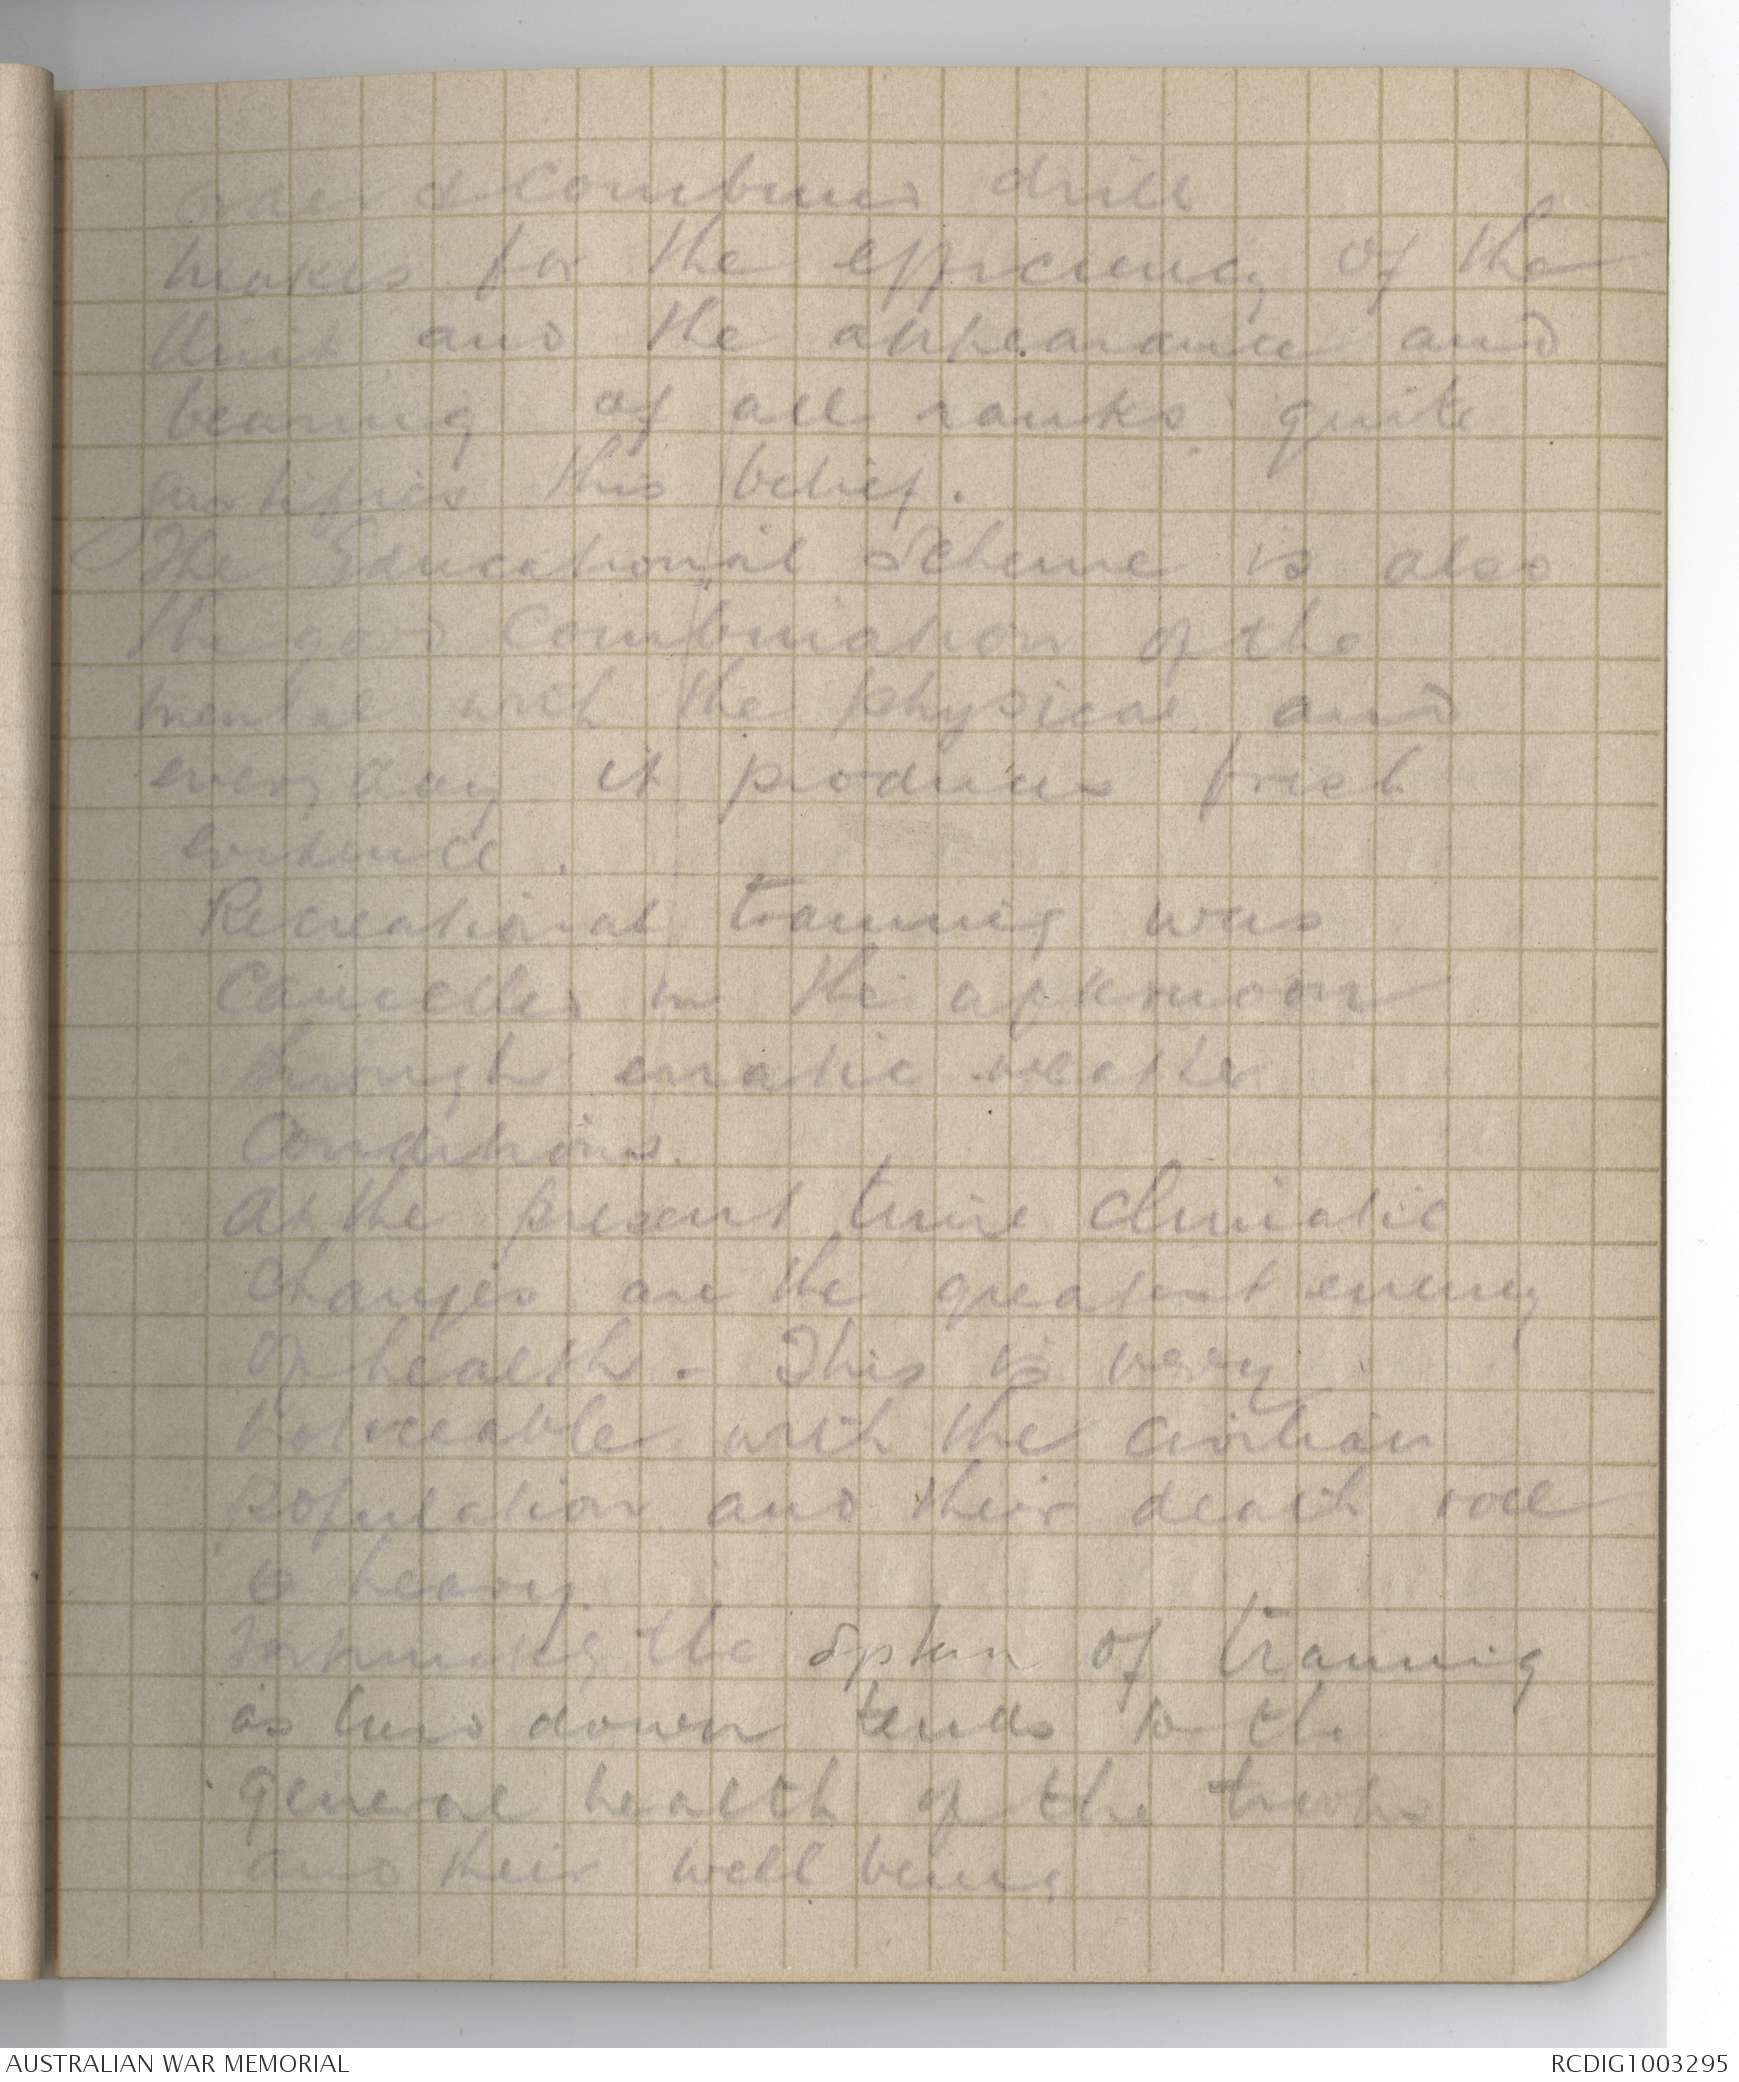 order & combined drill
makes for the efficiency of the
Unit and the appearance and
bearing of all ranks quite
justifies this belief.
The Educational Scheme is also
the good combination of the
mental with the physical and
every day it produces fresh
evidence.
Recreational training was
Cancelled in the afternoon
through erratic weather
Conditions.
At the present time climatic
changes are the greatest enemy
of health. This is very
noticeable with the civilian
population and their death roll
is heavy.
the system of training
as laid down tends to the
general health of the troops
and their well being
AUSTRALIAN WAR MEMORIAL
RCDIG1003295